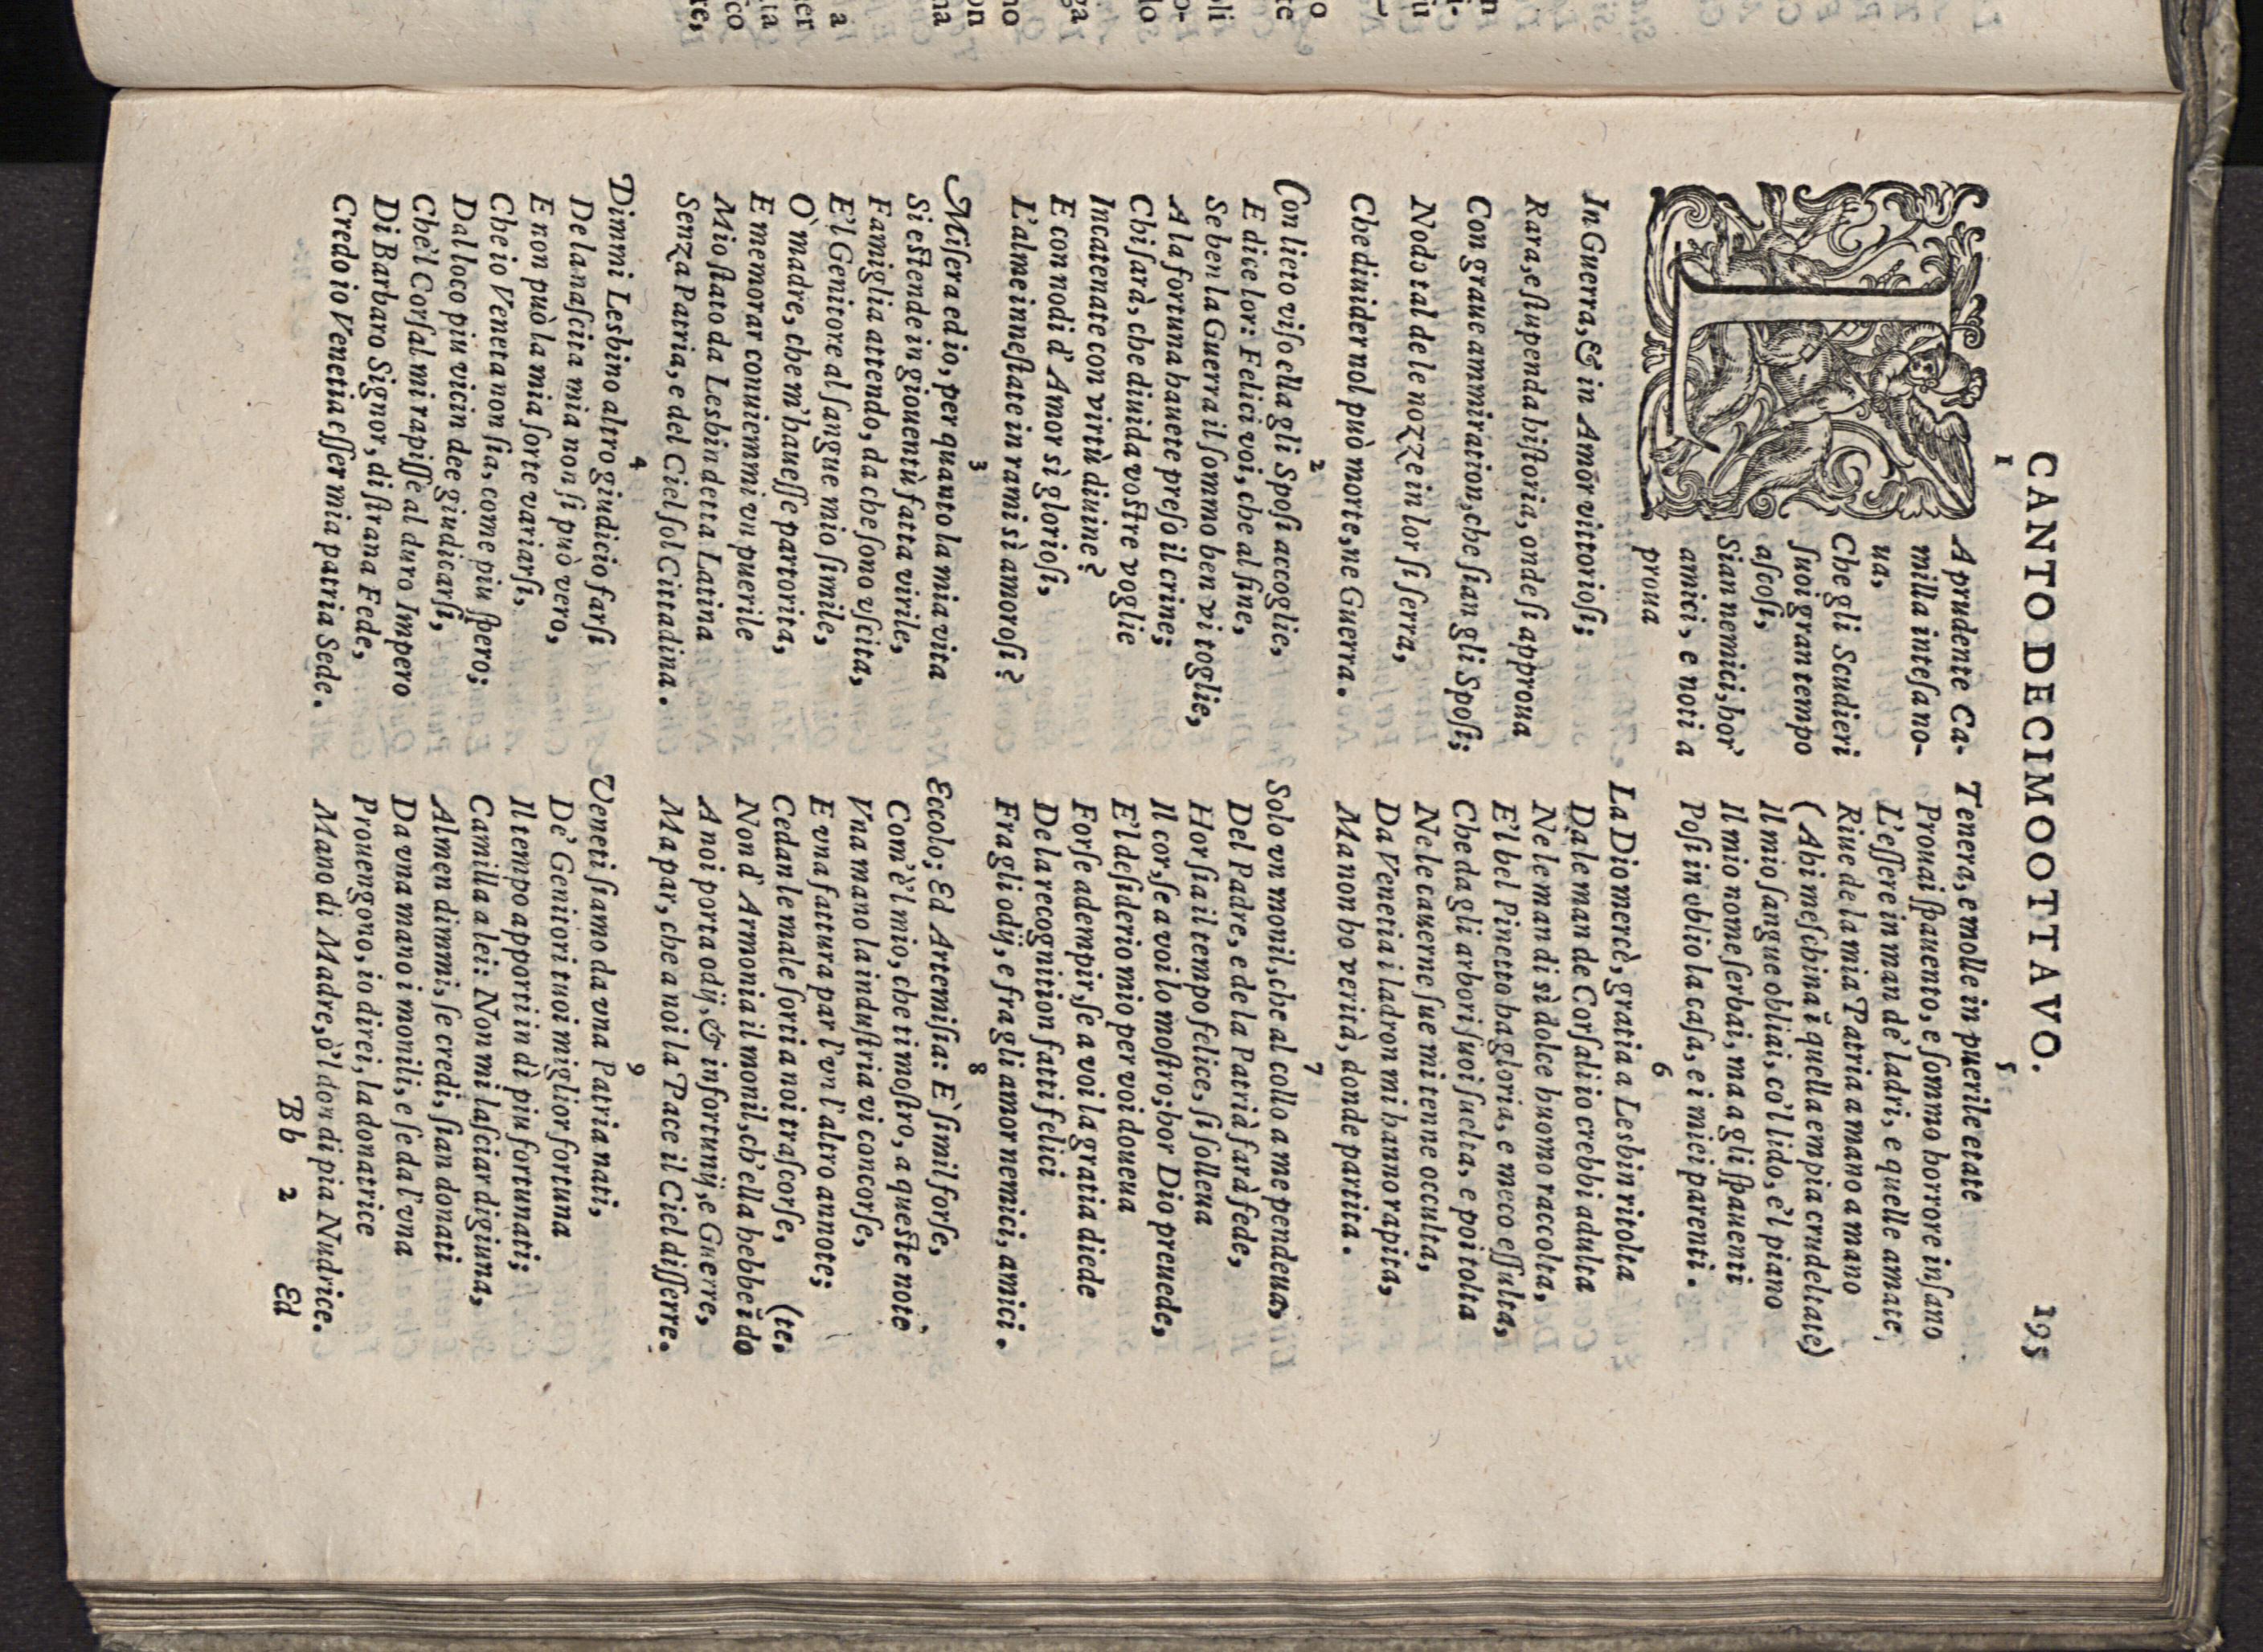 CANTO DECIMOOTTAVO. 195
1
LA prudente Ca-
milla inteſa no-
ua,
Che gli Scudieri
ſuoi gran tempo
aſcoſi,
Sian nemici, hor'
amici, e noti a
proua
In Guerra, & in Amor vittorioſi;
Rara, e ſtupenda hiſtoria, onde ſi approua
Con graue ammiration, che ſian gli Spoſi;
Nodo tal de le nozze in lor ſi ſerra,
Che diuider nol può morte, ne Guerra.
2
Con lieto viſo ella gli Spoſi accoglie,
E dice lor: Felici voi, che al fine,
Se ben la Guerra il ſommo ben vi toglie,
A la fortuna hauete preſo il crine;
Chi ſarà, che diuida voſtre voglie
Incatenate con virtù diuine?
E con nodi d'Amor sì glorioſi,
L'alme inneſtate in rami sì amoroſi?
3
Miſera ed io, per quanto la mia vita
Si eſtende in giouentù fatta virile,
Famiglia attendo, da che ſono vſcita,
E'l Genitore al ſangue mio ſimile,
O' madre, che m'haueſſe partorita,
E memorar conuiemmi vn puerile
Mio ſtato da Lesbin detta Latina
Senza Patria, e del Ciel ſol Cittadina.
4
Dimmi Lesbino altro giudicio farſi
De la naſcita mia non ſi può vero,
E non può la mia ſorte variarſi,
Che io Veneta non ſia, come piu ſpero;
Dal loco piu vicin dee giudicarſi,
Che'l Corſal mi rapiſſe al duro Impero
Di Barbaro Signor, di ſtrana Fede,
Credo io Venetia eſſer mia patria Sede.
5
Tenera, e molle in puerile etate
Prouai ſpauento, e ſommo horrore inſano
L'eſſere in man de' ladri, e quelle amate
Riue de la mia Patria a mano a mano
(Ahi meſchina ĩ quella empia crudeltate)
Il mio ſangue obliai, co'l lido, e'l piano
Il mio nome ſerbai, ma a gli ſpauenti
Poſi in oblio la caſa, e i miei parenti.
6
La Dio mercè, gratia a Lesbin ritolta
Da le man de Corſali io crebbi adulta
Ne le man di sì dolce huomo raccolta,
E'l bel Pinetto ha gloria, e meco eſſulta,
Che da gli arbori ſuoi ſuelta, e poi tolta
Ne le cauerne ſue mi tenne occulta,
Da Venetia i ladron mi hanno rapita,
Ma non ho verità, donde partita.
7
Solo vn monil, che al collo a me pendeua,
Del Padre, e de la Patria farà fede,
Hor ſia il tempo felice, ſi ſolleua
Il cor, ſe a voi lo moſtro; hor Dio preuede,
E'l deſiderio mio per voi doueua
Forſe adempir, ſe a voi la gratia diede
De la recognition fatti felici
Fra gli odij, e fra gli amor nemici, amici.
8
Eccolo; Ed Artemiſia: E' ſimil forſe,
Com'è'l mio, che ti moſtro, a queſte note
Vna mano la induſtria vi concorſe,
E vna fattura par l'vn l'altro annote;
Cedan le male ſorti a noi traſcorſe, (te.
Non d'Armonia il monil, ch'ella hebbe ĩ do
A noi porta odij, & infortunij, e Guerre,
Ma par, che a noi la Pace il Ciel diſſerre.
9
Veneti ſiamo da vna Patria nati,
De' Genitori tuoi miglior fortuna
Il tempo apporti in dì piu fortunati;
Camilla a lei: Non mi laſciar digiuna,
Almen dimmi, ſe credi, ſian donati
Da vna mano i monili, e ſe da l'vna
Prouengono, io direi, la donatrice
Mano di Madre, ò'l don di pia Nudrice.
Bb 2 Ed